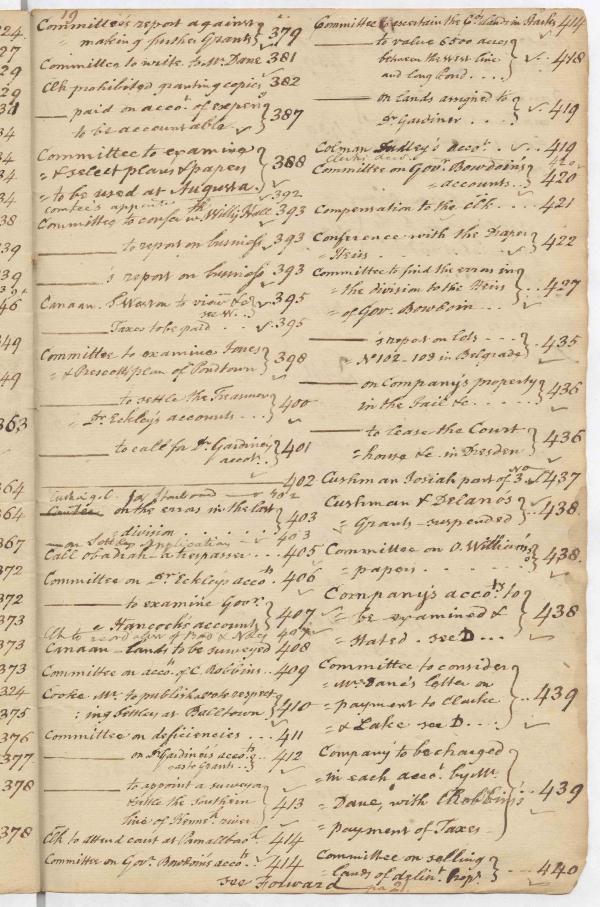 19
Committee's report against
" making further Grants } 379
Committee to write to Mr. Dane 381
Clk prohibited granting copies 382
—— paid on acco.t of expen
to be accountable } 387
Committee to examine
" & select plans & papers
" to be used at Augusta } 388
392
Committee to confer w. Willis Hall 393
—— to report on business 393
——'s report on business 393
Canaan. S. Weston to view &c 395
see W.
—— Taxes to be paid . . 395
Committee to examine Jones
" & Prescott's plan of Pondtown } 398
—— to settle the Treasurer
" Dr. Eckley's accounts . . . } 400
—— to call for Dr. Gardiner's
acco.ts } 401
—— 402
402
—— on the errors in the last
division . . . . . . } 403
—— on Settlers application 403
Call Obadiah a trespasser . . . 405
Committee on Dr. Eckley's acco.ts 406
—— to examine Gov.r
" Hancock's account } 407
Clk to record 407
Canaan - lands to be surveyed 408
Committee on acco. of C. Robbins . . 409
Cooke Mr. to publish a vote respect
: ing settlers at Balltown } 410
Committee on deficiencies . . . 411
—— on Dr. Gardiner's acco.ts
as to Grants . . } 412
—— to appoint a surveyor
& settle the Southern
line of Kenne. river } 413
Clk to attend court at Pownalboro' 414
Committee on Gov.r Bowdoin's acco.ts 414
see Forward pa 21.
Committee to ascertain the Co. lands in Harlem 414
—— to value 6500 acres
between the West line
and long pond . . . . } 418
—— on lands assigned to
Dr. Gardiner . . . . } 419
Colman Dudley's acco.t . . 419
Committee on Gov.r Bowdoin's
" accounts . . } 420
Compensation to the Clk . . . 421
Conference with the Draper
" Heirs . . . . } 422
Committee to find the errors in
" the division to the Heirs
" of Gov. Bowdoin . . . } 427
——'s report on lots . . .
" No 102 - 103 in Belgrade } 435
—— on Company's property
in the Jail &c . . . . . } 436
—— to lease the Court
" house &c in Dresden } 436
Cushman Josiah part of No 3. 437
Cushman & Delano's
" Grants suspended } 438
Committee on O. Williams
" papers . . . . . } 438
Company's acco.ts to
" be examined &
" stated . see D . . . } 438
Committee to consider
" Mr. Dane's letter on
" payment to Clarke
" & Lake see D . . . } 439
Company to be charged
" in each acco.t by Mr.
" Dane, with C Robbins's
" payment of Taxes } 439
Committee on selling
" lands of delin.t Prop.rs } 440
224
27
29
29
31
34
34
34
34
38
239
239
46
349
349
363
364
364
367
372
372
373
373
373
324
375
376
377
378
378